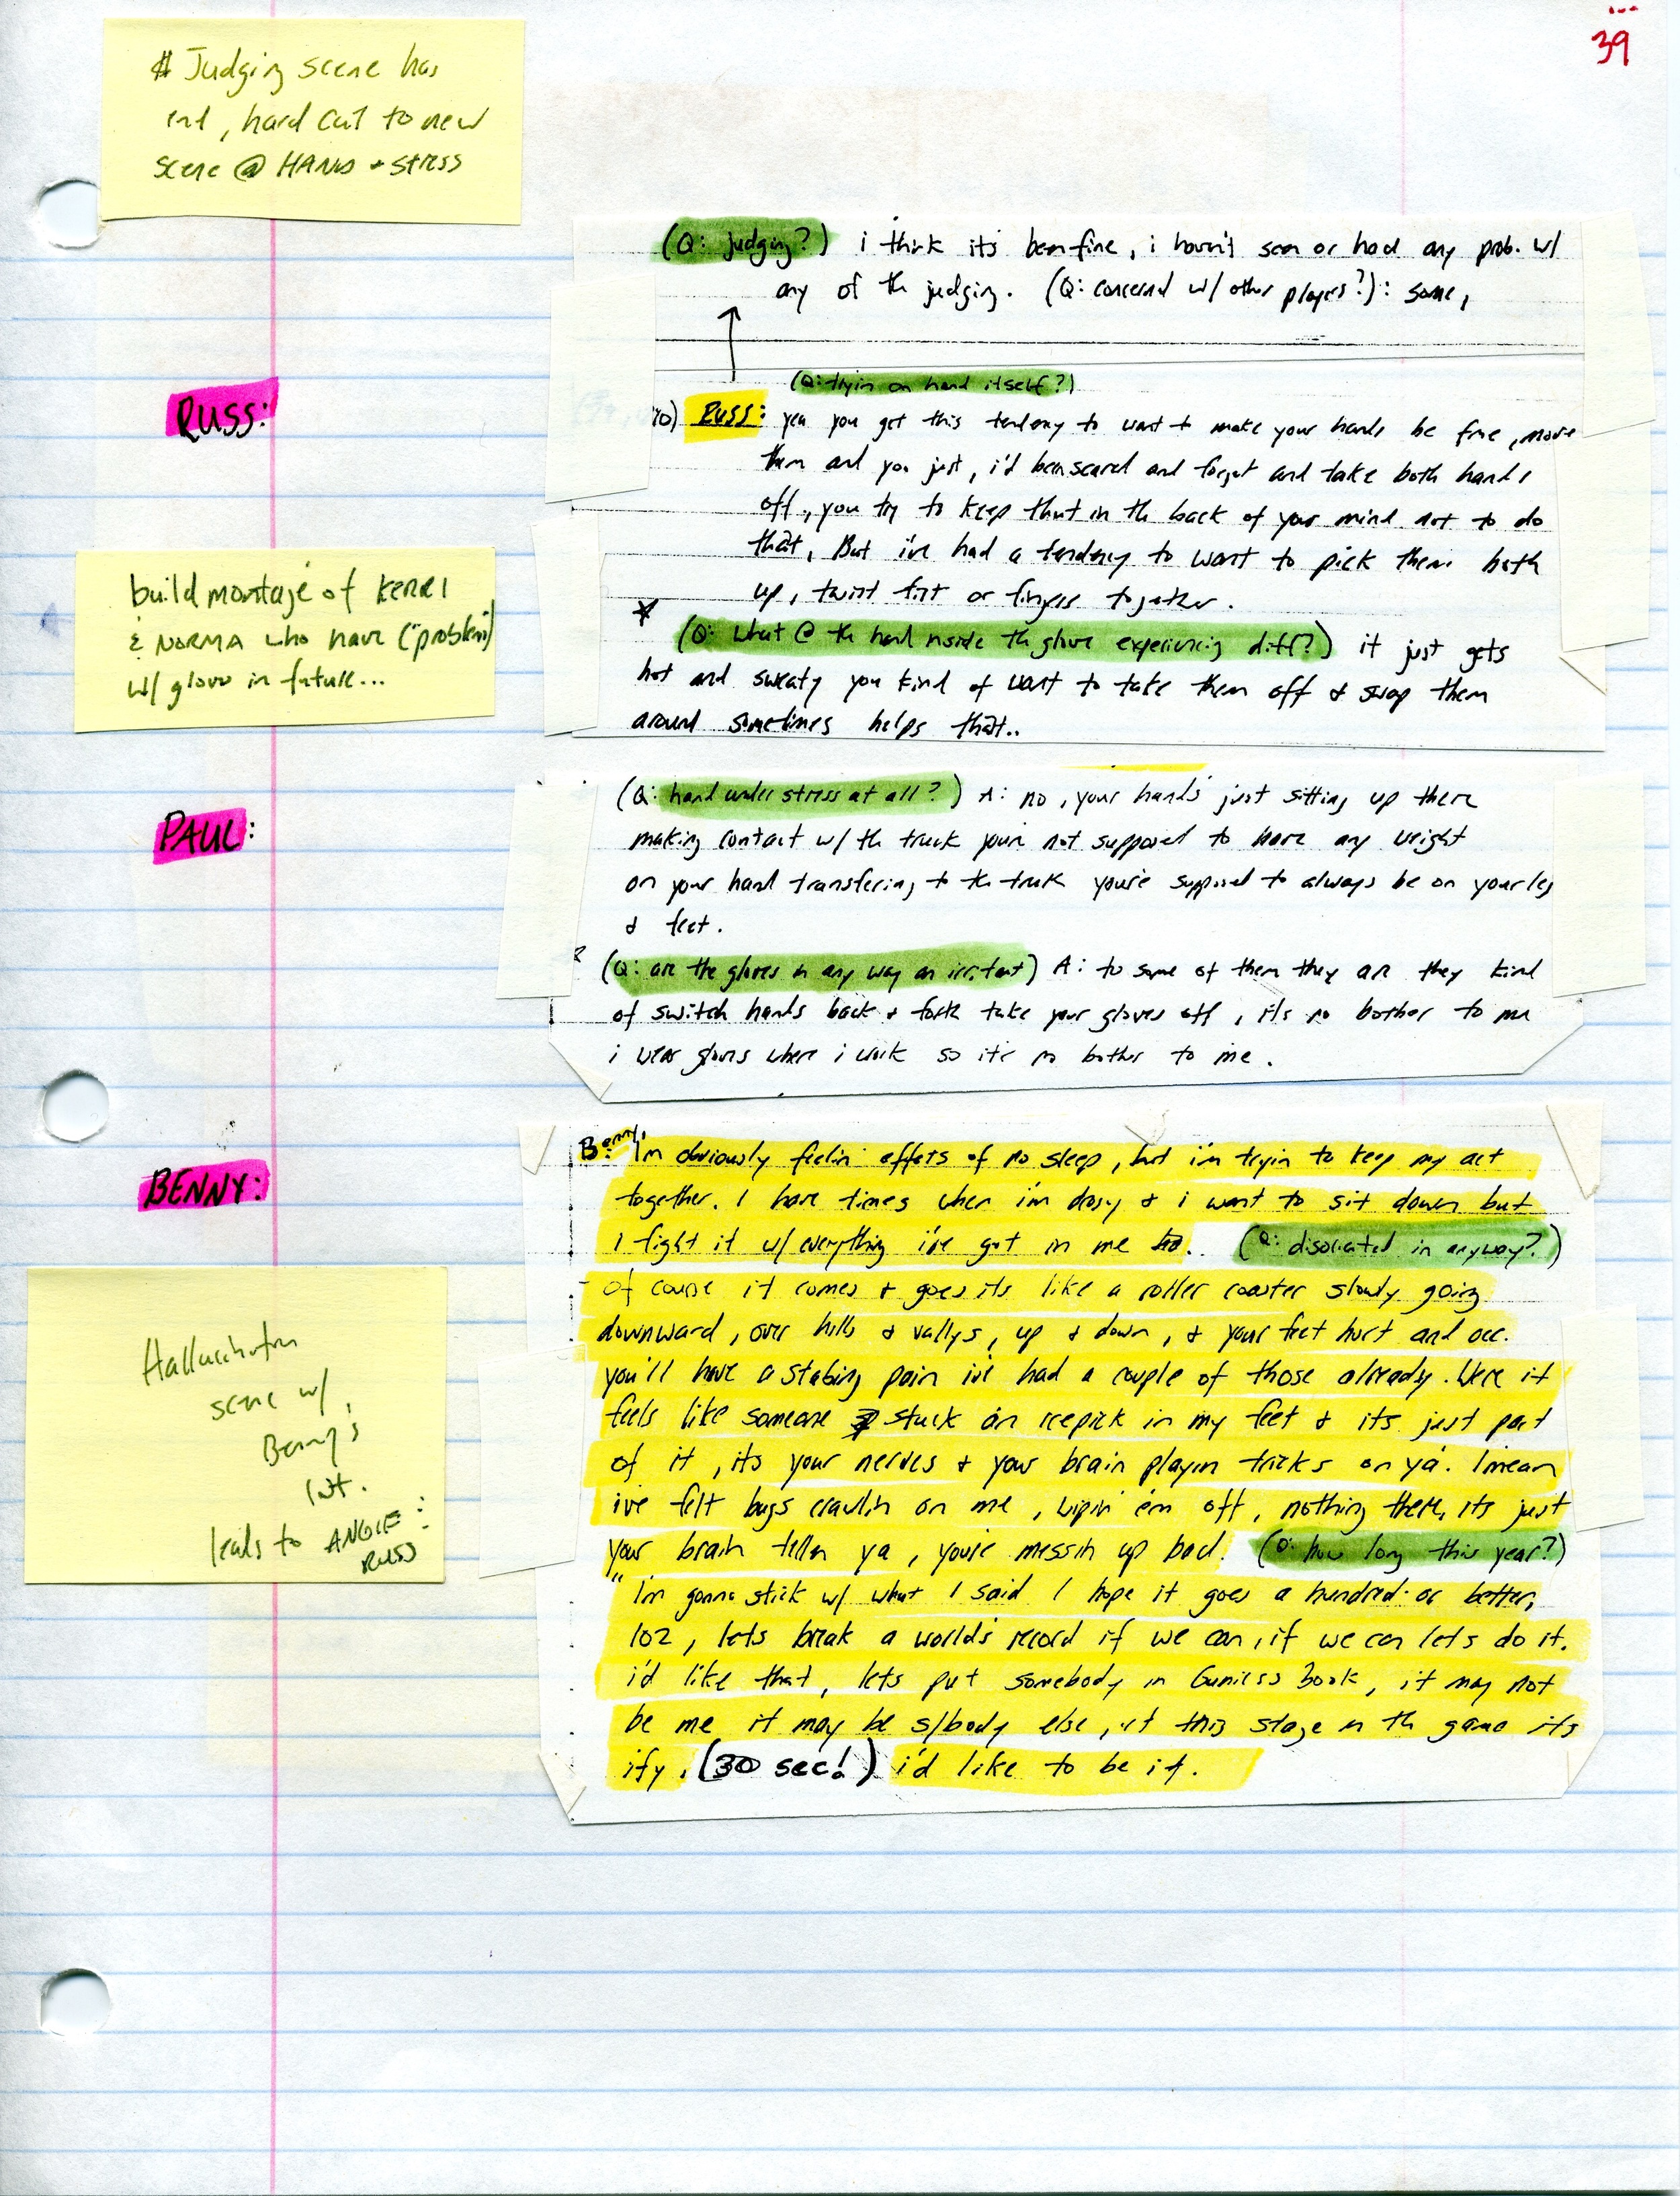 39
# Judging scene has
int, hard cut to new
scene @ HANDS + stress
(Q: judging?) i think its been fine, i haven't seen or had any prob. w/
any of th judging. (Q: concerned w/ other players?): some,
(Q: tryin on hand itself?)
RUSS:
RUSS: yea you get this tendency to want to make your hands be free, move
them and you just, i'd been scared and forget and take both hands
off, you try to keep that in th back of your mind not to do
that, But i've had a tendency to want to pick them both
up, twist fist or fingers together.
build montage of KERRI
& NORMA who have ("problem")
w/ glove in future...
(Q: What @ th hand inside th glove experiencing diff?) it just gets
hot and sweaty you kind of want to take them off & swap them
around sometimes helps that..
PAUL:
(Q: hand under stress at all?) A: no, your hands just sitting up there
making contact w/ th truck your not supposed to have any weight
on your hand transfering to th truck you're supposed to always be on your leg
& feet.
(Q: are the gloves in any way an irritant) A: to some of them they are they kind
of switch hands back & forth take your gloves off, its no bother to me
i wear gloves where i work so it's no bother to me.
BENNY:
Benny: I'm obviously feelin effects of no sleep, but i'm tryin to keep my act
together. I have times when i'm dosy & i want to sit down but
I fight it w/ everything i've got in me. (Q: disoriented in anyway?)
of course it comes & goes its like a roller coaster slowly going
downward, over hills & vallys, up & down, & your feet hurt and occ.
you'll have a stabing pain i've had a couple of those already. Were it
feels like someone stuck an icepick in my feet & its just part
of it, its your nerves & your brain playin tricks on ya. I mean
i've felt bugs crawlin on me, wipin' em off, nothing there, its just
your brain tellin ya, you're messin up bad. (Q: how long this year?)
"I'm gonna stick w/ what I said I hope it goes a hundred or better,
102, lets break a worlds record if we can, if we can lets do it.
i'd like that, lets put somebody in Guniess Book, it may not
be me it may be s/body else, at this stage in th game its
ify. (30 sec!) i'd like to be it.
Hallucination
scene w/
Benny's
int.
leads to ANGIE:
RUSS